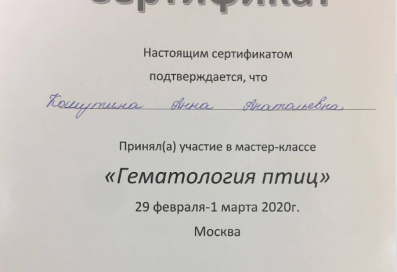 Сертификат
Настоящим сертификатом
подтверждается, что
Анна Анатольевна
Принял(а) участие в мастер-классе
«Гематология птиц»
29 февраля-1 марта 2020г.
Москва